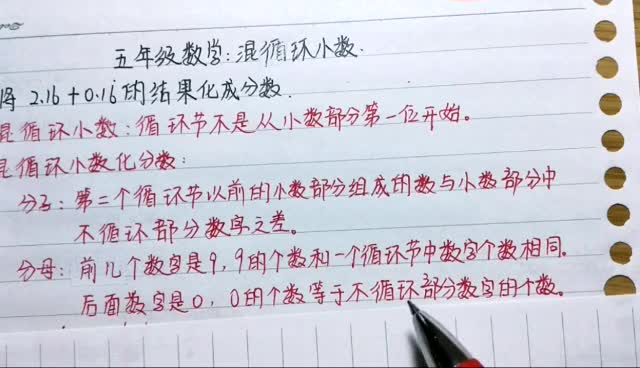 五年级数学:混循环小数.
将 2.16+0.16的结果化成分数.
混循环小数:循环节不是从小数部分第一位开始。
混循环小数化分数:
分子:第二个循环节以前的小数部分组成的数与小数部分中
不循环部分数字之差。
分母:前几个数字是9,9的个数和一个循环节中数字个数相同.
后面数字是0,0的个数等于不循环部分数字的个数。